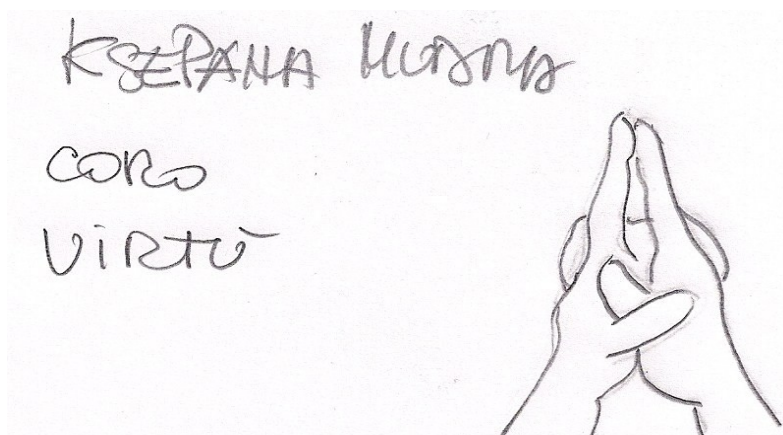 KSEPANA MUDRA
CORO
VIRTÙ